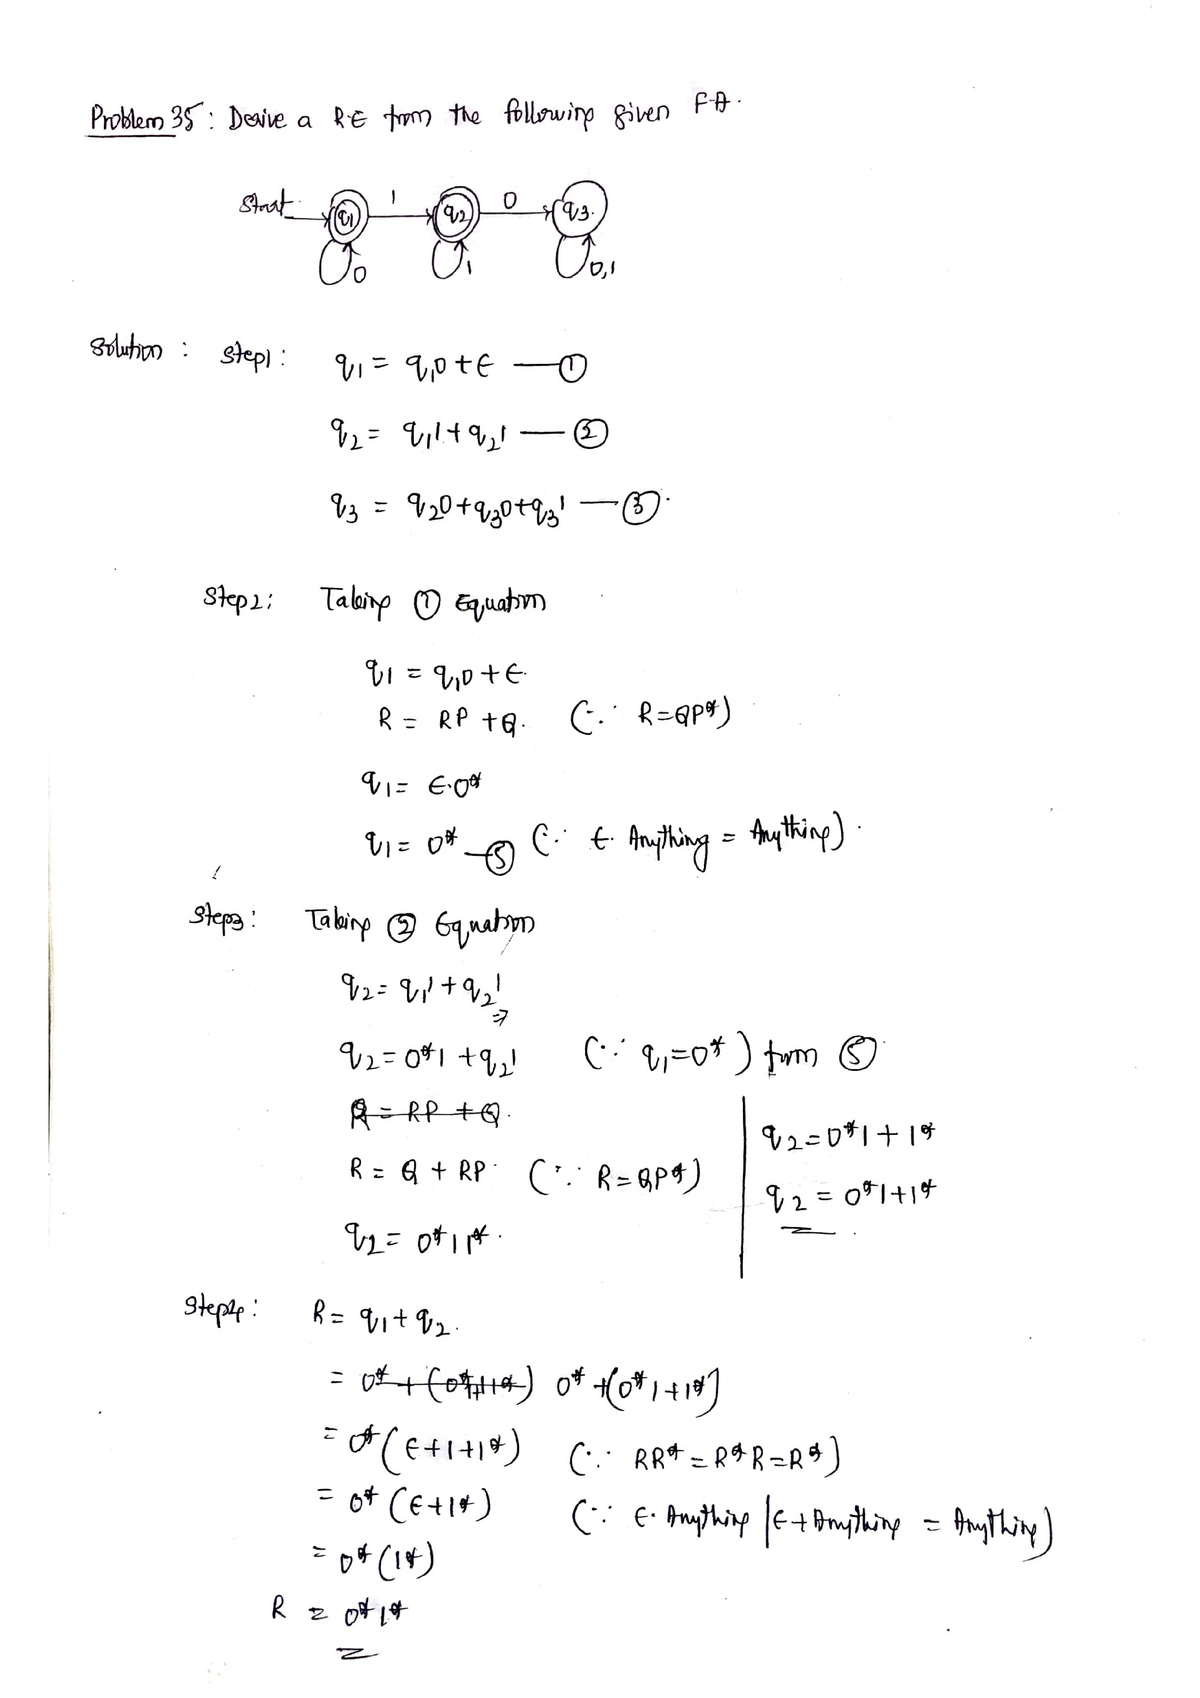 Problem 35: Derive a R.E from the following given F.A.
Start q1 1 q2 0 q3.
0 1 0,1
Solution : Step1: q1 = q10 + ∈ — ①
q2 = q11 + q21 — ②
q3 = q20 + q30 + q31 — ③.
Step2: Taking ① Equation
q1 = q10 + ∈.
R = RP + Q. (∵ R = QP*)
q1 = ∈.0*
q1 = 0* — ⑤ (∵ ∈. Anything = Anything).
Step3: Taking ② Equation
q2 = q11 + q21
⇒
q2 = 0*1 + q21 (∵ q1 = 0*) from ⑤
R = RP + Q.
R = Q + RP. (∵ R = QP*)
q2 = 0*11*.
q2 = 0*1 + 1*
q2 = 0*1 + 1*
Step4: R = q1 + q2.
= 0* + (0*1+1*) 0* + (0*1 + 1*)
= 0* (∈ + 1 + 1*) (∵ RR* = R*R = R*)
= 0* (∈ + 1*) (∵ ∈. Anything | ∈ + Anything = Anything)
= 0* (1*)
R = 0*1*